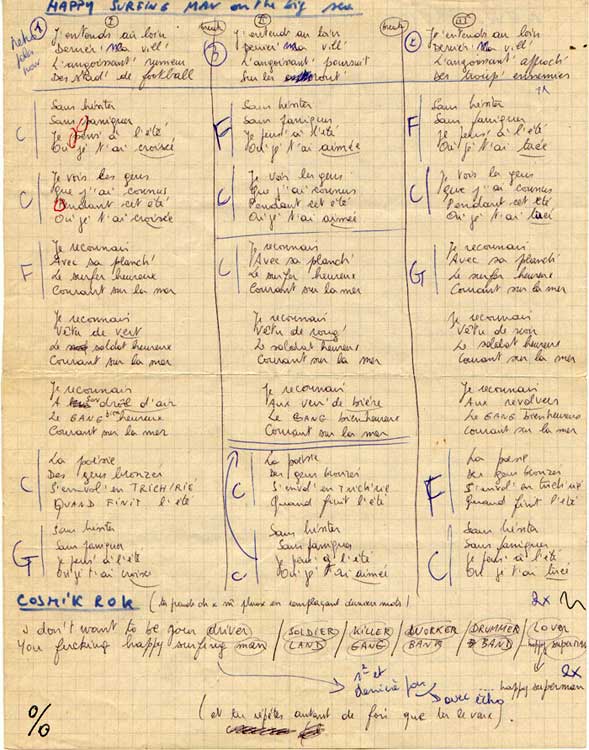 HAPPY SURFING MAN on the big sea
1
J'entends au loin
Derrièr' Ma vill'
L'angoissant' rumeur
Des stad' de football
C
Sans hésiter
Sans paniquer
Je pens' à l'été
Où je t'ai croisée
C
Je vois les gens
Que j'ai connus
Pendant cet été
Où je t'ai croisée
F
Je reconnais
Avec sa planch'
Le surfer heureux
Courant sur la mer
Je reconnais
Vêtu de vert
Le soldat heureux
Courant sur la mer
Je reconnais
A son drôl' d'air
Le GANG bien heureux
Courant sur la mer
C
La poésie
Des gens bronzés
S'envol' en TRICH'RIE
QUAND FINIT l'été
G
Sans hésiter
Sans paniquer
Je pens' à l'été
Où je t'ai croisée
break
J'entends au loin
Derrièr' Ma vill'
L'angoissant' poursuit'
Sur les
F
Sans hésiter
Sans paniquer
Je pens' à l'été
Où je t'ai aimée
C
Je vois les gens
Que j'ai connus
Pendant cet été
Où je t'ai aimée
C
Je reconnais
Avec sa planch'
Le surfer heureux
Courant sur la mer
Je reconnais
Vêtu de roug'
Le soldat heureux
Courant sur la mer
Je reconnais
Aux verr' de bière
Le GANG bienheureux
Courant sur la mer
C
La poésie
Des gens bronzés
S'envol' en TRICH'RIE
Quand finit l'été
C
Sans hésiter
Sans paniquer
Je pens' à l'été
Où je t'ai aimée
break
J'entends au loin
Derrièr' Ma vill'
L'angoissant' approch'
Des troup' ennemies
F
Sans hésiter
Sans paniquer
Je pens' à l'été
Où je t'ai tuée
C
Je vois les gens
Que j'ai connus
Pendant cet été
Où je t'ai tuée
G
Je reconnais
Avec sa planch'
Le surfer heureux
Courant sur la mer
Je reconnais
Vêtu de noir
Le soldat heureux
Courant sur la mer
Je reconnais
Aux revolvers
Le GANG bienheureux
Courant sur la mer
F
La poésie
Des gens bronzés
S'envol' en trich'rie
Quand finit l'été
C
Sans hésiter
Sans paniquer
Je pens' à l'été
Où je t'ai tuée
COSMIK ROK (tu prends ch x sa phrase en remplaçant derniers mots)
2x
I don't want to be your driver / SOLDIER / KILLER / WORKER / DRUMMER / LOVER
You fucking happy surfing man / LAND / GANG / BAND / BAND / happy superman
2x
1° et dernière fois avec écho ... happy superman
(et tu répètes autant de fois que tu le veux).
%